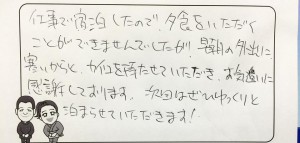 仕事で宿泊したので、夕食をいただく
ことができませんでしたが、早朝の外出に、
寒いからと、カイロを持たせていただき、お気遣いに
感謝しております。次回はぜひゆっくりと
泊まらせていただきます!